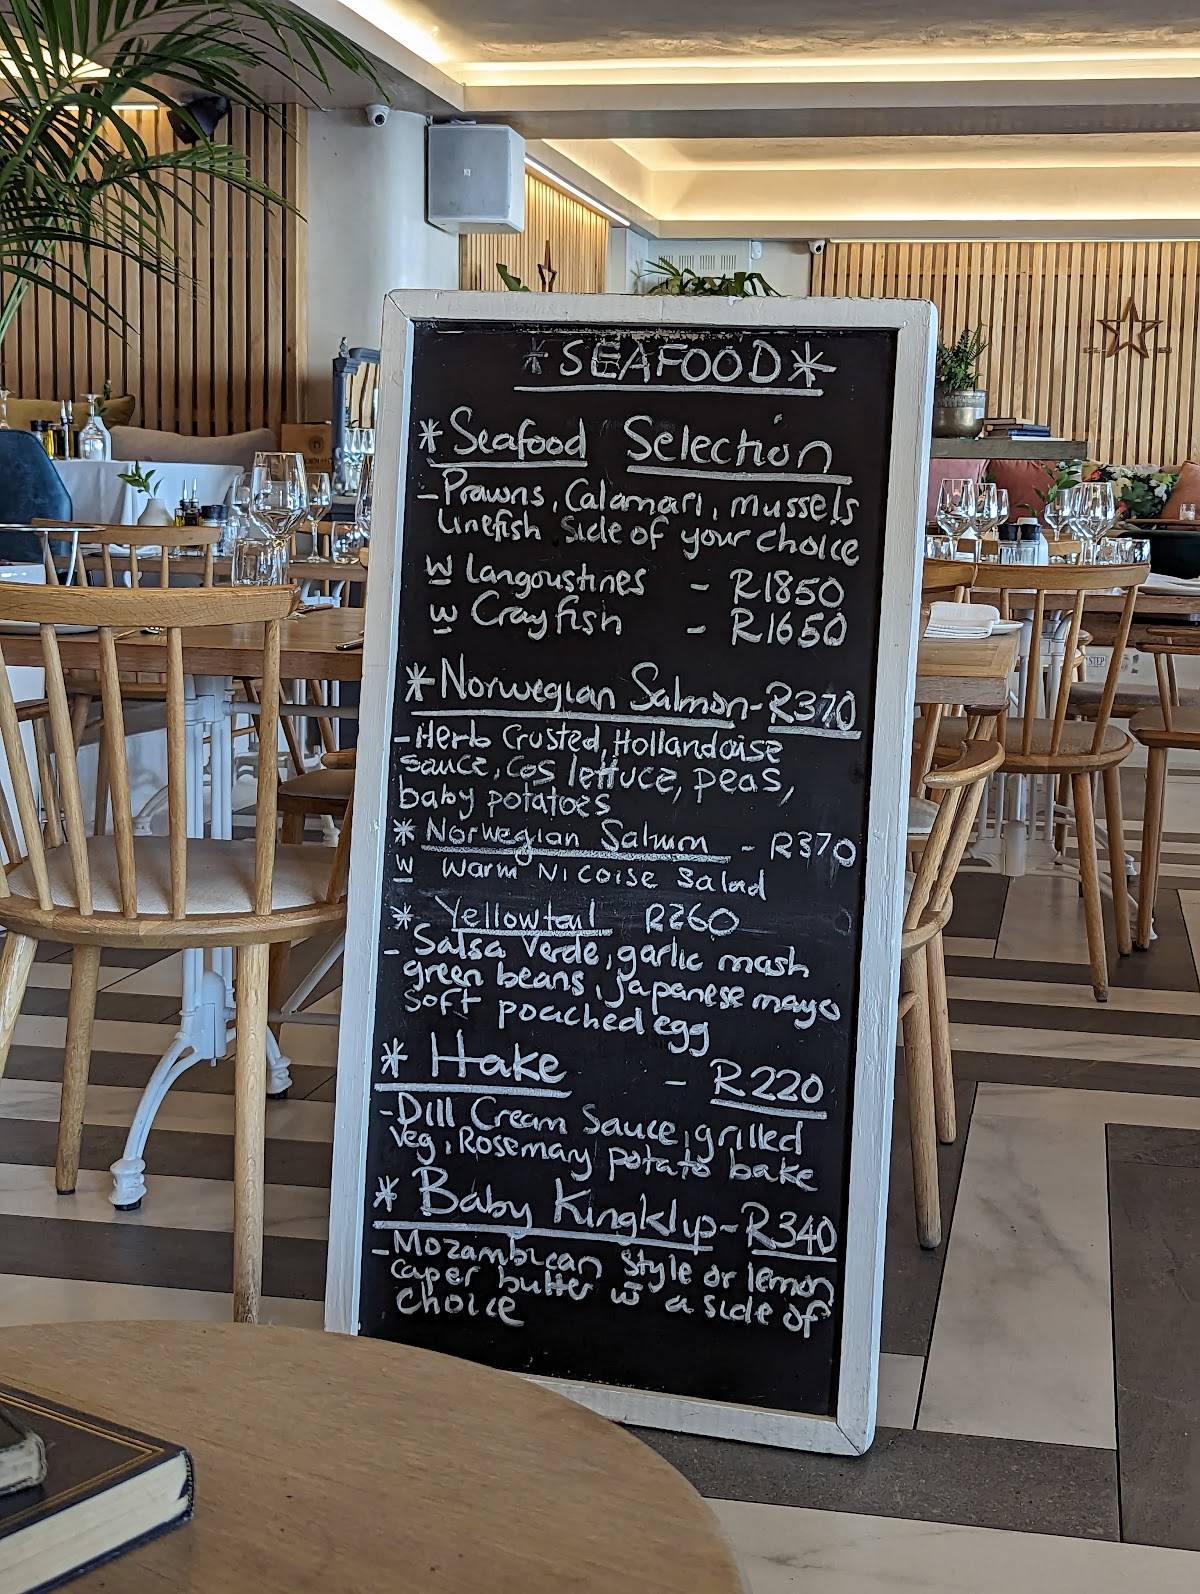 * SEAFOOD *
* Seafood Selection
- Prawns, Calamari, mussels
linefish side of your choice
w Langoustines - R1850
w Crayfish - R1650
* Norwegian Salmon - R370
- Herb Crusted, Hollandaise
sauce, cos lettuce, peas,
baby potatoes
* Norwegian Salmon - R370
w warm Nicoise Salad
* Yellowtail R260
- Salsa Verde, garlic mash
green beans, japanese mayo
soft poached egg
* Hake - R220
- Dill Cream Sauce, grilled
veg, Rosemary potato bake
* Baby Kingklip - R340
- Mozambican style or lemon
caper butter w a side of
choice